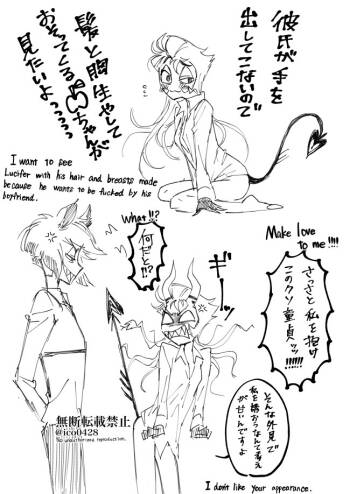 彼氏が手を
出してこないので
髪と胸生やして
おそってくる
ちゃんが
見たいよ
I want to see
Lucifer with his hair and breasts made
because he wants to be fucked by his
boyfriend.
What!!?
何だと!!?
Make love
to me!!!!
さっさと私を抱け
このクソ童貞ッッ!!!!!!
そんな外見で
私を誘おうなんて考え
が甘いんですよ
I don't like your appearance.
無断転載禁止
@ico0428
No unauthorized reproduction.